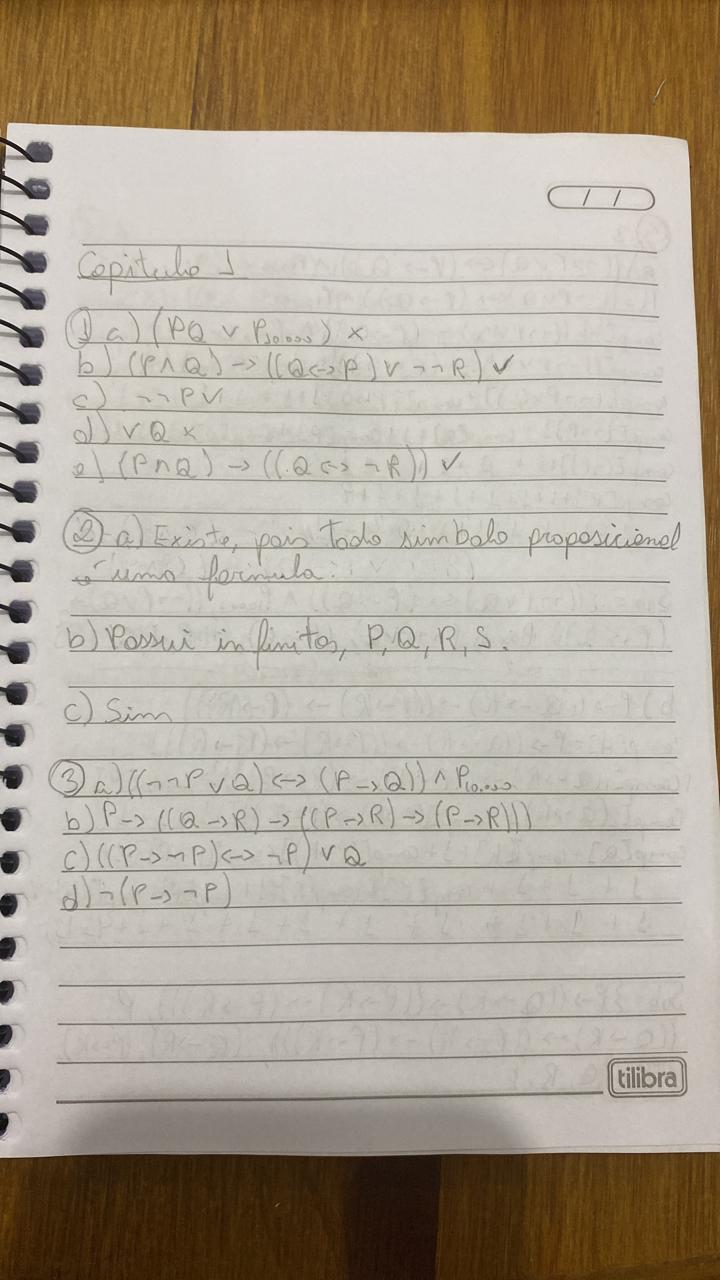 / /
Capitulo 1
① a) (PQ ∨ P₁₀.₀₀₀) ×
b) (P∧Q) → ((Q↔P) ∨ ¬¬R) ✓
c) ¬¬P ✓
d) ∨Q ×
e) (P∧Q) → ((Q ↔ ¬R)) ✓
② a) Existe, pois todo simbolo proposicional
é uma formula.
b) Possui infinitos, P, Q, R, S.
c) Sim
③ a) ((¬¬P ∨ Q) ↔ (P→Q)) ∧ P₁₀.₀₀₀
b) P → ((Q→R) → ((P→R) → (P→R)))
c) ((P→¬P) ↔ ¬P) ∨ Q
d) ¬(P→¬P)
tilibra